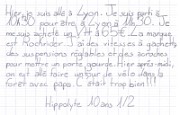 Hier je suis allé à Lyon. Je suis parti à
10H30 pour être à Lyon à 11H30. Je
me suis acheté un VTT à 65€. La marque
est Rockrider. Il a des vitesses à gachettes
des suspensions réglables et des encoches
pour mettre un porte gourde. Hier après-midi,
on est allé faire un tour de vélo dans la
forêt avec papa. C'était trop bien!!!
Hippolyte 10 ans 1/2